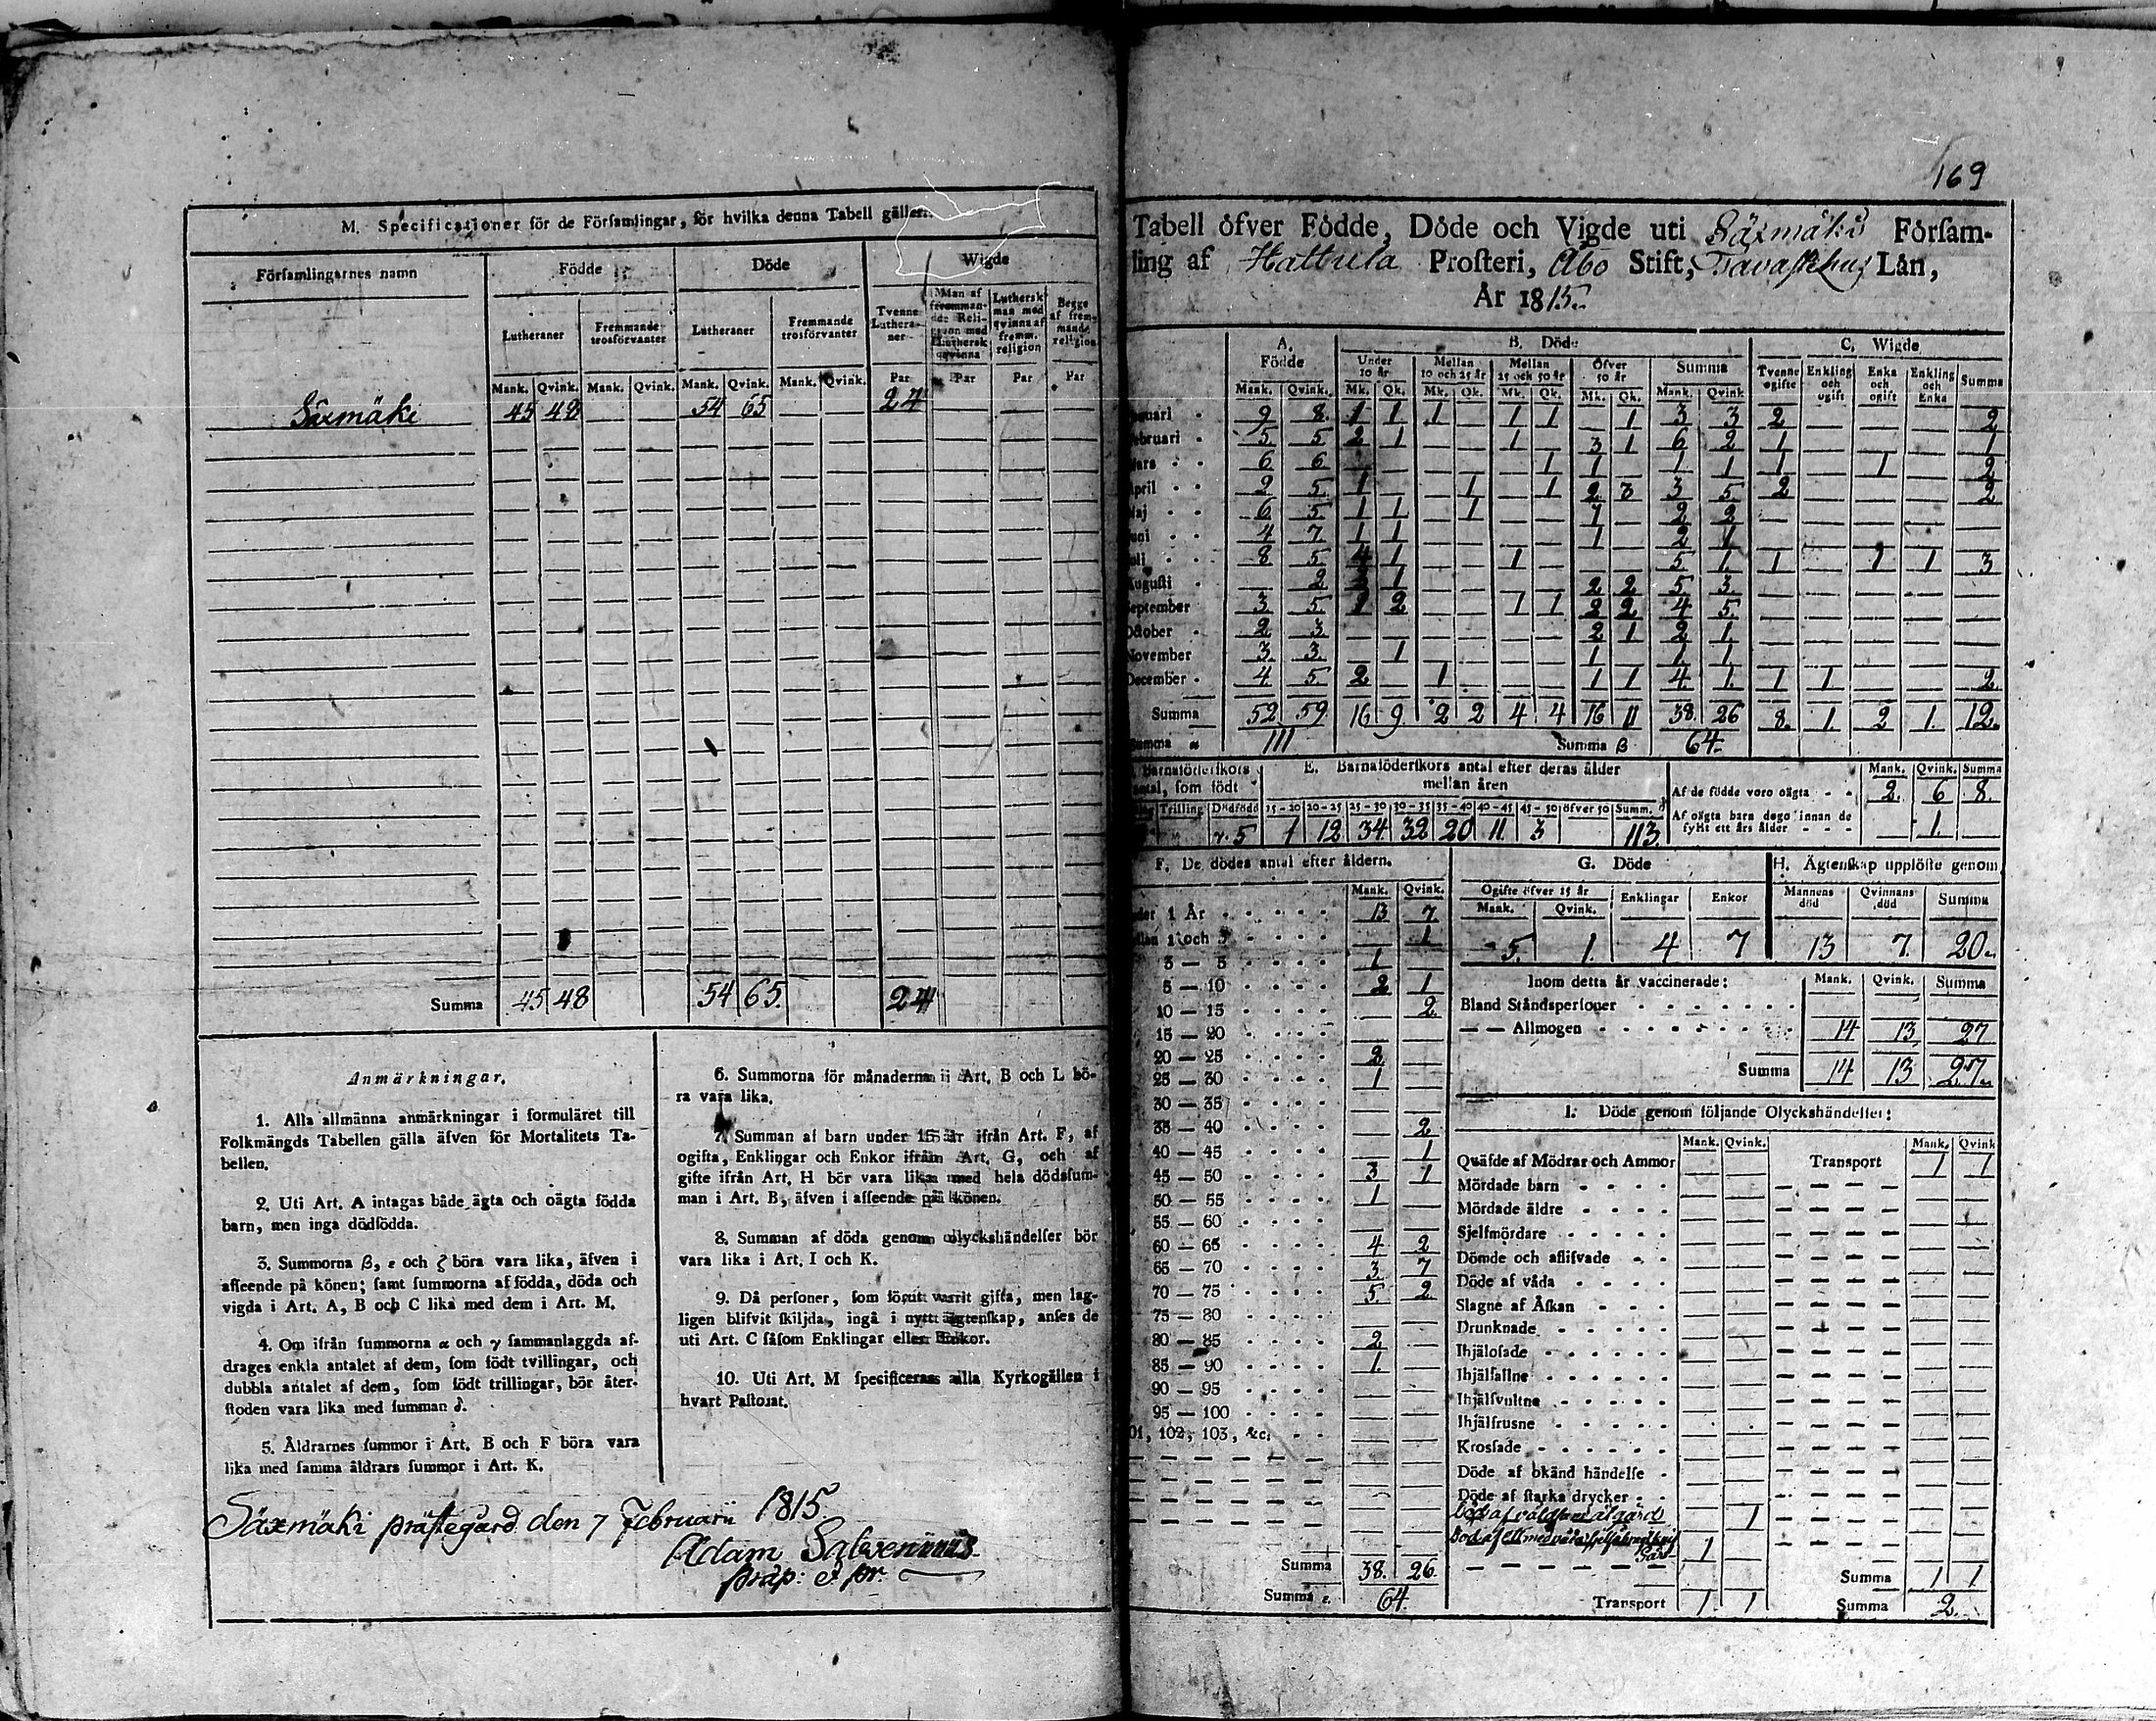 M. Specificationer för de Församlingar, för hvilka denna Tabell gäller.
Församlingarnes namn Födde Döde Wigde
Lutheraner Fremmande trosförvanter Lutheraner Fremmande trosförvanter Tvenne Lutheraner Man af fremmande Religion med Luthersk qvinna Luthersk man med qvinna af fremm. religion Begge af fremmande religion
Mank. Qvink. Mank. Qvink. Mank. Qvink. Mank. Qvink. Par Par Par Par
Säxmäki 45 48 54 65 24
Summa 45 48 54 65. 24
Anmärkningar.
1. Alla allmänna anmärkningar i formuläret till
Folkmängds Tabellen gälla äfven för Mortalitets Ta-
bellen.
2. Uti Art. A intagas både ägta och oägta födda
barn, men inga dödfödda.
3. Summorna β, ε och ζ böra vara lika, äfven i
afseende på könen; samt summorna af födda, döda och
vigda i Art. A, B och C lika med dem i Art. M.
4. Om ifrån summorna α och γ sammanlaggda af-
drages enkla antalet af dem, som födt tvillingar, och
dubbla antalet af dem, som födt trillingar, bör åter-
stoden vara lika med summan δ.
5. Åldrarnes summor i Art. B och F böra vara
lika med samma åldrars summor i Art. K.
6. Summorna för månaderna i Art. B och L bö-
ra vara lika.
7. Summan af barn under 15 år ifrån Art. F, af
ogifta, Enklingar och Enkor ifrån Art. G, och af
gifte ifrån Art. H bör vara lika med hela dödssum-
man i Art. B, äfven i afseende på könen.
8. Summan af döda genom olyckshändelser bör
vara lika i Art. I och K.
9. Då personer, som förut varit gifta, men lag-
ligen blifvit skiljda, ingå i nytt ägtenskap, anses de
uti Art. C såsom Enklingar eller Enkor.
10. Uti Art. M specificeras alla Kyrkogällen i
hvart Pastorat.
Säxmäki prästegård den 7 Februarii 1815.
Adam Salvenius
præp: et pr.
169
Tabell öfver Födde, Döde och Vigde uti Säxmäki Försam-
ling af Hattula Prosteri, Åbo Stift, Tavastehus Län,
År 1815.
A. Födde B. Döde C. Wigde
Under 10 år Mellan 10 och 25 år Mellan 25 och 50 år Öfver 50 år Summa Tvenne ogifte Enkling och ogift Enka och ogift Enkling och Enka Summa
Mank. Qvink. Mk. Qk. Mk. Qk. Mk. Qk. Mk. Qk. Mank. Qvink
anuari 9 8. 1 1 1 1 1 1 3 3 2 2
ebruari 5 5 2 1 1 3 1 6 2 1 1
ars 6 6 1 1 1 1 1 1 2
April 2 5. 1 1 1 2 3 3 5. 2 2
Maj 6 5 1 1 1 1 2 2
uni 4 7 1 1 1 2 1
uli 8 5. 4 1 1 5 1. 1 1 1 3
Augusti 2 3 1 2 2 5. 3.
September 3 5. 1 2 1 1 2 2 4 5.
October 2 3 2 1 2 1
November 3. 3. 1 1 1. 1.
December 4. 5. 2 1 1 1 4. 1. 1 1 2.
Summa 52 59 16 9. 2 2 4 4 16 11 38. 26 8. 1. 2 1. 12.
Summa α 111 Summa β 64.
Barnaföderskors antal, som födt E. Barnaföderskors antal efter deras ålder mellan åren Mank. Qvink. Summa
Trilling Dödfödd 15-20 20-25 25-30 30-35 35-40 40-45 45-50 öfver 50 Summ. δ
γ. 5 1 12 34 32 20 11. 3 113.
Af de födde voro oägta 2. 6 8.
Af oägta barn dogo innan de fyllt ett års ålder 1.
F. De dödes antal efter åldern.
Mank. Qvink.
der 1 År 13 7
llan 1 och 3 1
3 — 5 1
5 — 10 2 1
10 — 15 2
15 — 20
20 — 25 2
25 — 30 1
30 — 35
35 — 40 2
40 — 45 1
45 — 50 3 1
50 — 55 1
55 — 60
60 — 65 4 2
65 — 70 3 7
70 — 75 5. 2
75 — 80
80 — 85 2
85 — 90 1.
90 — 95
95 — 100
01, 102, 103, &c.
Summa 38. 26.
Summa ε. 64.
G. Döde H. Ägtenskap upplöste genom
Ogifte öfver 15 år Enklingar Enkor Mannens död Qvinnans död Summa
Mank. Qvink.
5. 1. 4 7 13 7. 20.
Inom detta år vaccinerade: Mank. Qvink. Summa
Bland Ståndspersoner
— — Allmogen 14 13 27
Summa 14 13 27.
I. Döde genom följande Olyckshändelser:
Mank. Qvink. Mank. Qvink
Quäfde af Mödrar och Ammor Transport 1 1
Mördade barn
Mördade äldre
Sjelfmördare
Dömde och aflifvade
Döde af våda
Slagne af Åskan
Drunknade
Ihjälosade
Ihjälfallne
Ihjälsvultne
Ihjälfrusne
Krossade
Döde af okänd händelse
Döde af starka drycker
död af våldsam åtgärd 1
1
Summa 1 1
Transport 1 1 Summa 2.